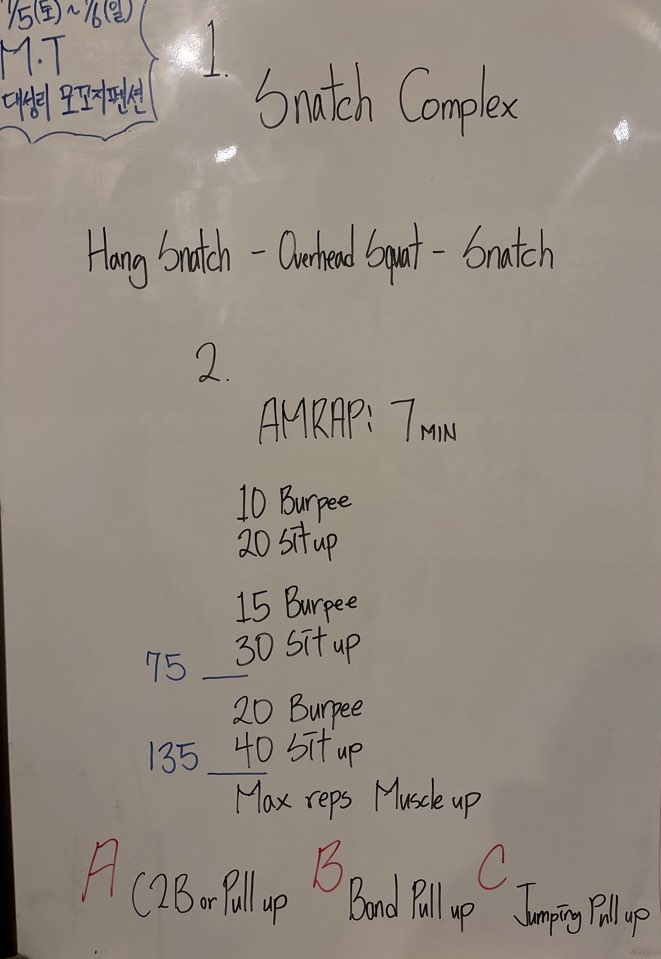 1/5(토)~1/6(일)
M.T
대성리 모꼬지펜션
1.
Snatch Complex
Hang Snatch - Overhead Squat - Snatch
2.
AMRAP: 7 MIN
10 Burpee
20 Sit up
15 Burpee
30 Sit up
75
20 Burpee
40 Sit up
135
Max reps Muscle up
A C2B or Pull up B Band Pull up C Jumping Pull up